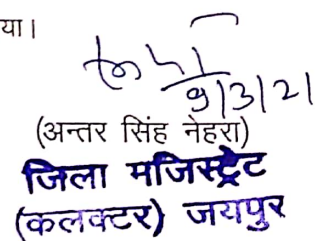 या।
9/3/21
(अन्तर सिंह नेहरा)
जिला मजिस्ट्रेट
(कलक्टर) जयपुर